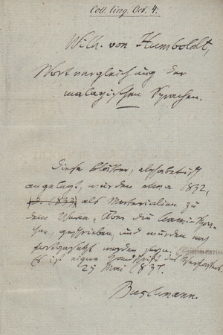 Coll. ling. Oct. 4.
Wilh. von Humboldt,
Wortvergleichung der
malayischen Sprachen.
Diese Blätter, alphabetisch
angelegt, wurden etwa 1832,
als Materialien zu
dem Werke, über die Kawi-Spra-
che, geschrieben, und wurden
fortgesetzt worden seyn.
Es ist eigne Handschrift des
29 Mai 1837.
Buschmann.